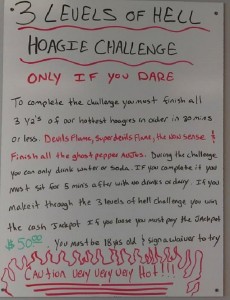 3 LEVELS OF HELL
HOAGIE CHALLENGE
ONLY IF YOU DARE
To complete the challenge you must finish all
3 1/2's of our hottest hoagies in order in 30 mins
or less. Devils Flame, Super devils Flame, the non sense &
Finish all the ghost pepper nuttos. During the challenge
you can only drink water or soda. If you complete it you
must sit for 5 mins after with no drinks or dairy. If you
make it through the 3 levels of hell challenge you win
the cash Jackpot If you loose you must pay the Jackpot
$50.00. You must be 18 yrs old & sign a waiver to try
CAUTION very very very HOT!!!